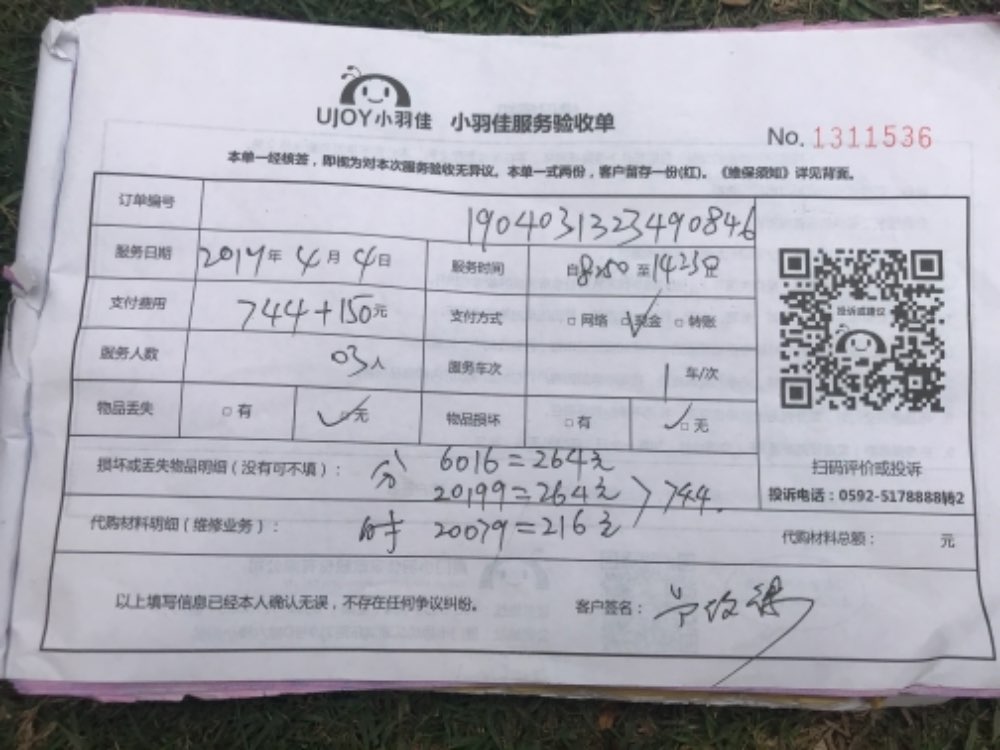 UJOY小羽佳 小羽佳服务验收单
No. 1311536
本单一经核签，即视为对本次服务验收无异议。本单一式两份，客户留存一份(红)。《维保须知》详见背面。
订单编号 1904031323490846
服务日期 2019年4月4日 服务时间 自8:50至14:23
支付费用 744+150元 支付方式 □网络 □现金 □转账
服务人数 03人 服务车次 1车/次
物品丢失 □有 □无 物品损坏 □有 □无
投诉或建议
扫码评价或投诉
投诉电话：0592-5178888转2
损坏或丢失物品明细（没有可不填）： 6016=264元
20199=264元 > 744.
代购材料明细（维修业务）： 时 20079=216元 代购材料总额： 元
以上填写信息已经本人确认无误，不存在任何争议纠纷。 客户签名：